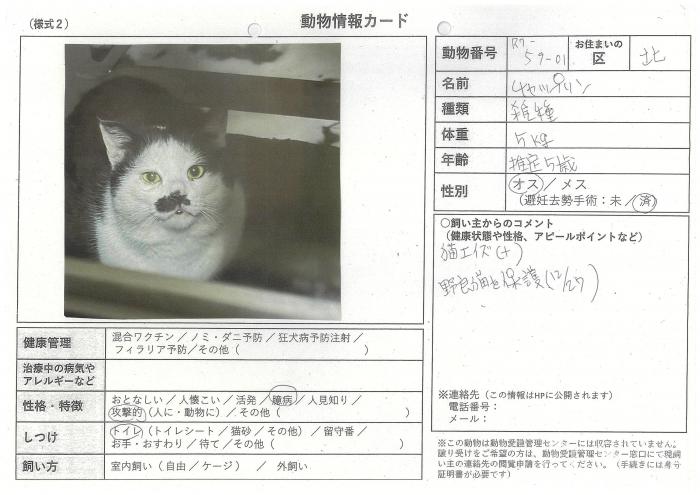 （様式２）
動物情報カード
動物番号 R7-59-01 お住まいの区 北
名前 チャップリン
種類 雑種
体重 5kg
年齢 推定5歳
性別 オス／メス
（避妊去勢手術：未／済）
○飼い主からのコメント
（健康状態や性格、アピールポイントなど）
猫エイズ(+)
野良猫を保護(12/27)
※連絡先（この情報はHPに公開されます）
電話番号：
メール：
健康管理 混合ワクチン／ノミ・ダニ予防／狂犬病予防注射／
フィラリア予防／その他（ ）
治療中の病気や
アレルギーなど
性格・特徴 おとなしい／人懐こい／活発／臆病／人見知り／
攻撃的（人に・動物に）／その他（ ）
しつけ トイレ（トイレシート／猫砂／その他）／留守番／
お手・おすわり／待て／その他（ ）
飼い方 室内飼い（自由／ケージ） ／ 外飼い
※この動物は動物愛護管理センターには収容されていません。
譲り受けをご希望の方は、動物愛護管理センター窓口にて現飼
い主の連絡先の閲覧申請を行ってください。（手続きには身分
証明書が必要です）